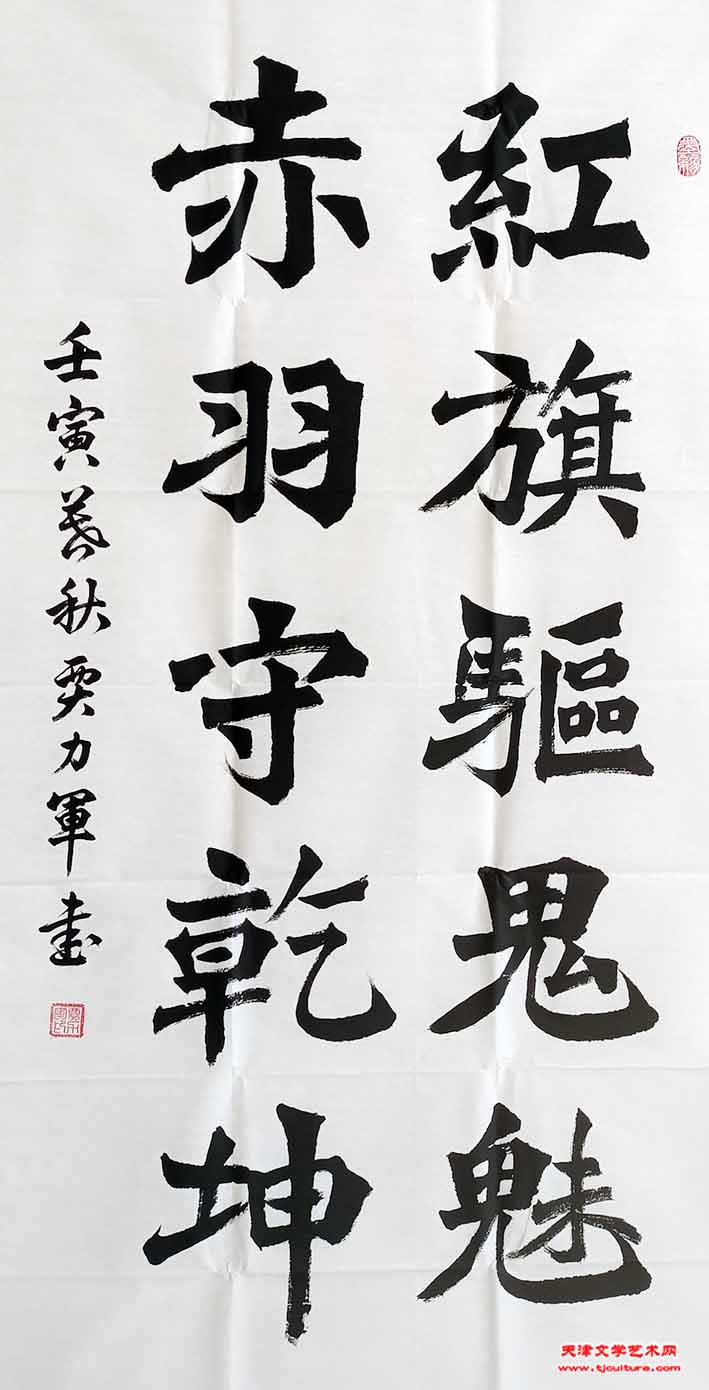 紅旗驅鬼魅
赤羽守乾坤
壬寅暮秋賈力軍書
天津文学艺术网
www.tjculture.com